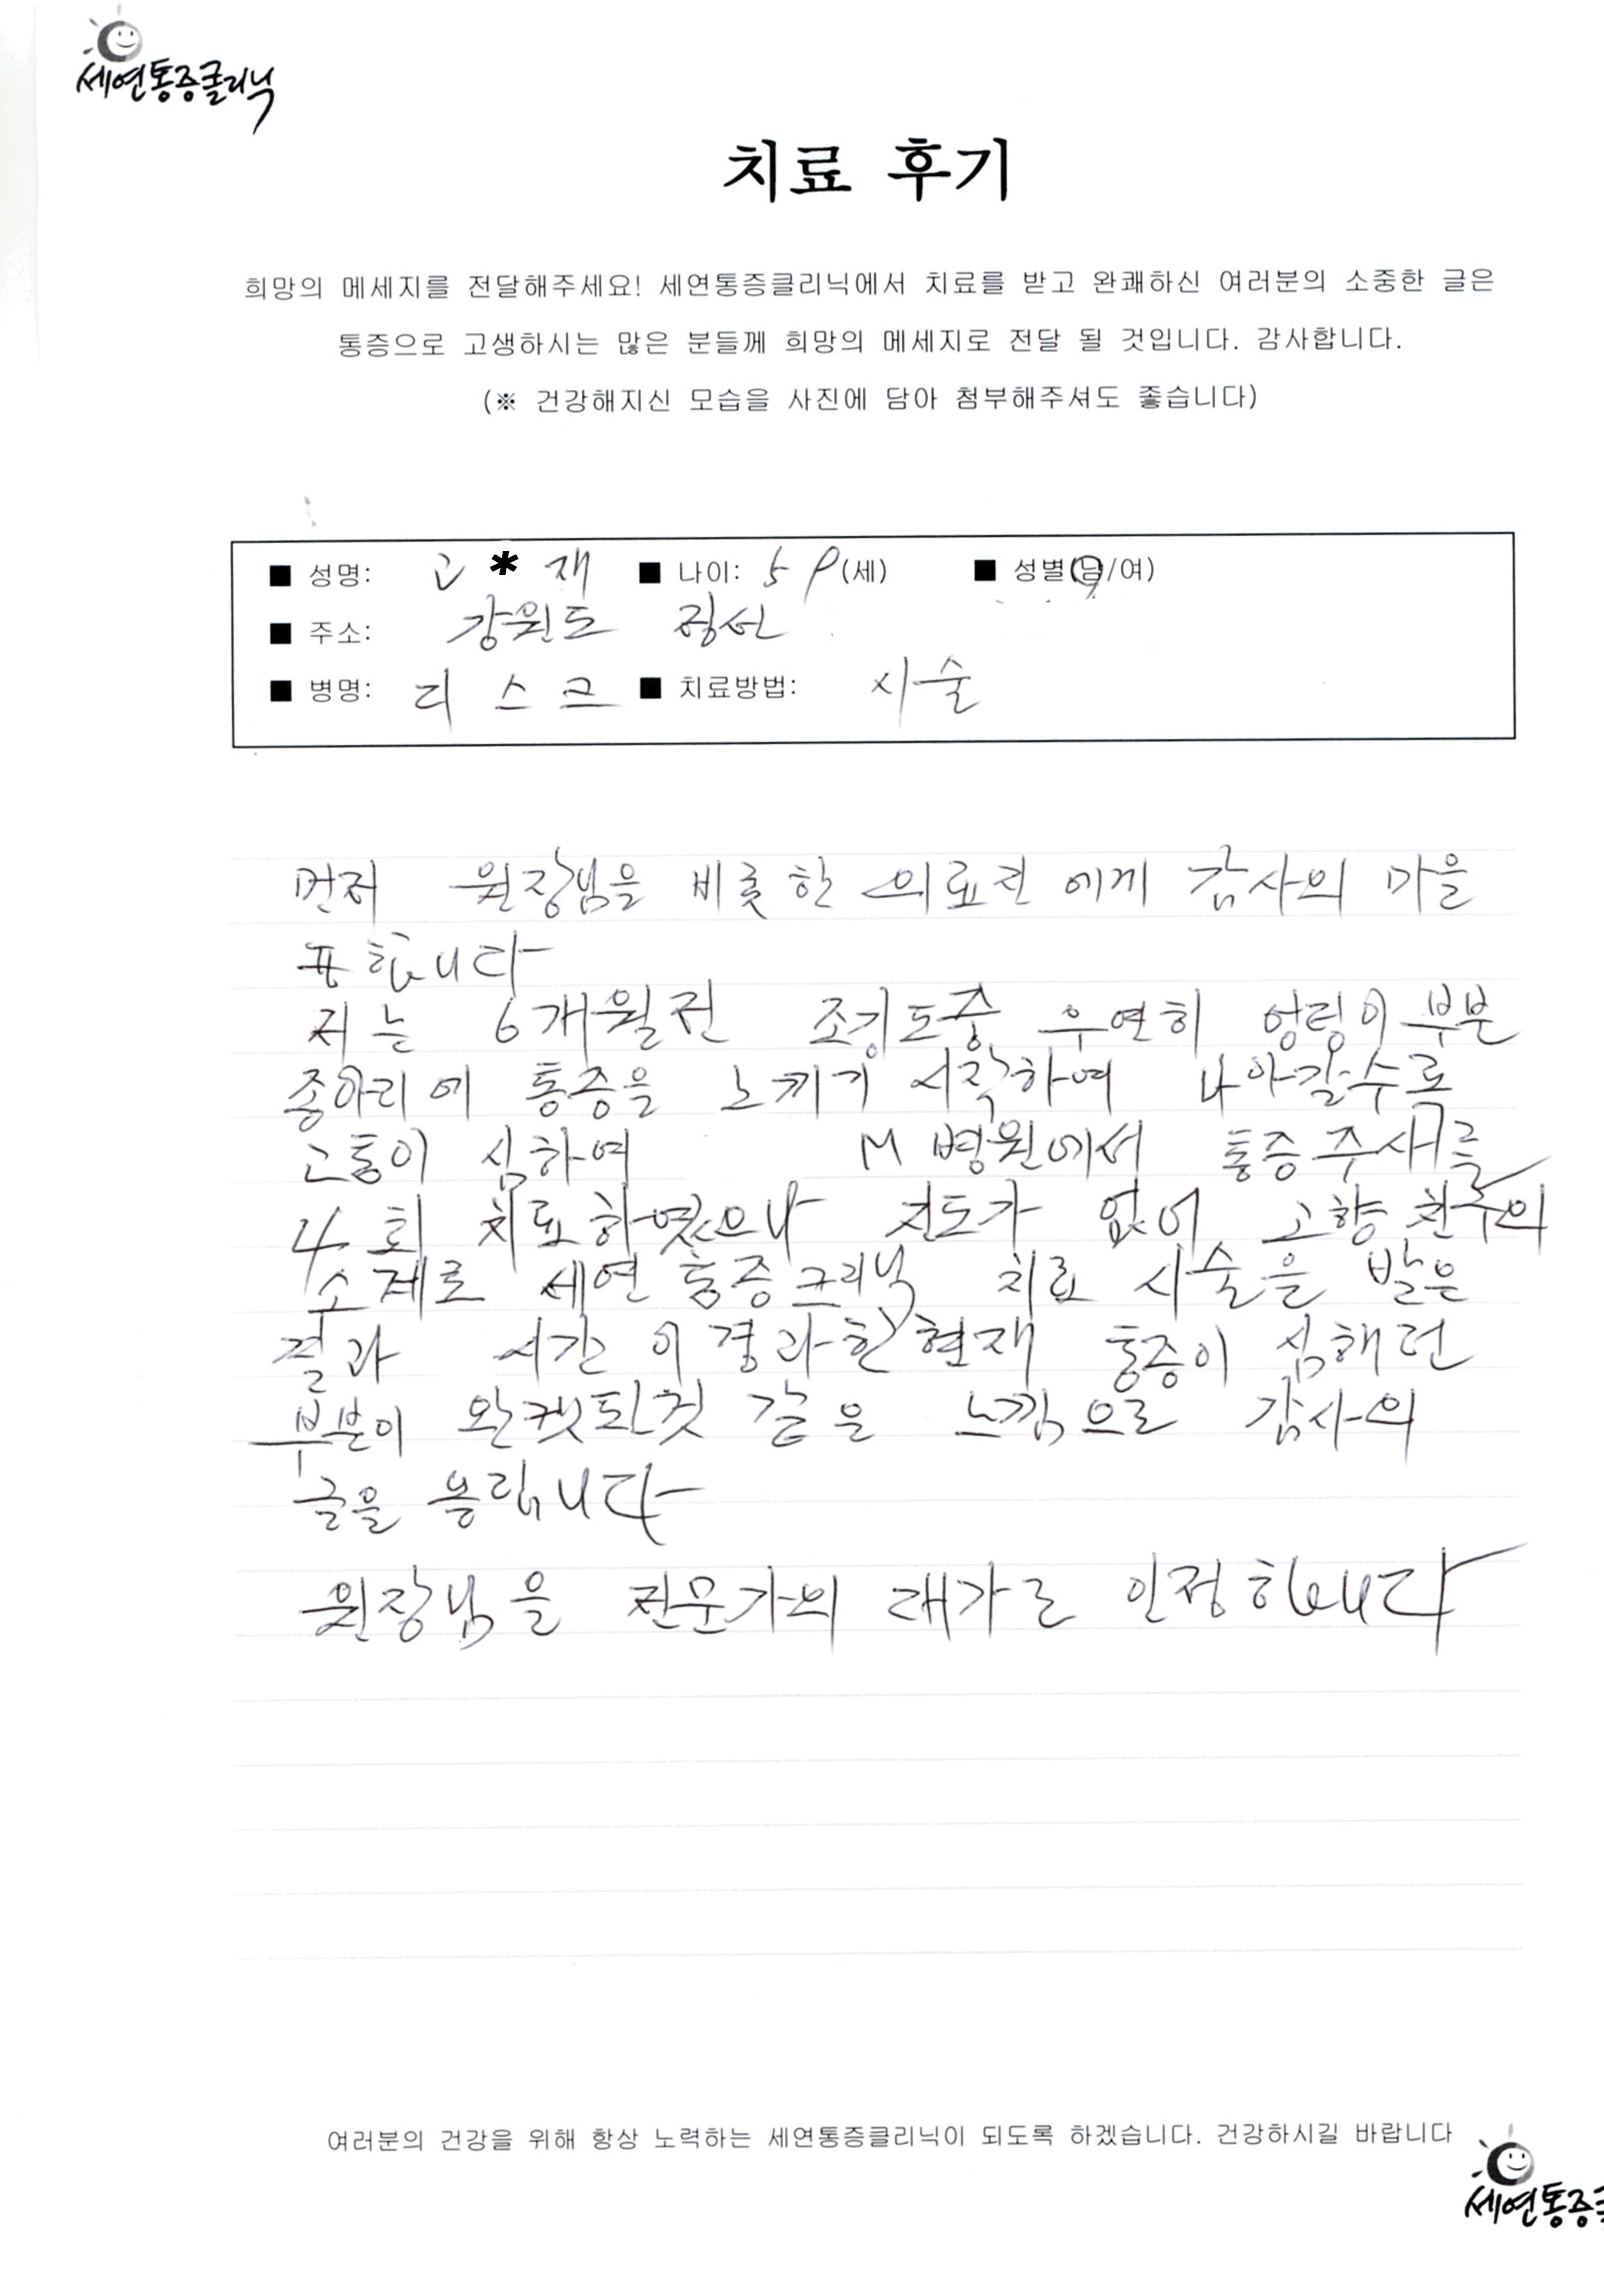 세연통증클리닉
치료 후기
희망의 메세지를 전달해주세요! 세연통증클리닉에서 치료를 받고 완쾌하신 여러분의 소중한 글은
통증으로 고생하시는 많은 분들께 희망의 메세지로 전달 될 것입니다. 감사합니다.
(※ 건강해지신 모습을 사진에 담아 첨부해주셔도 좋습니다)
■ 성명: 고 * 재 ■ 나이: 59 (세) ■ 성별(남/여)
■ 주소: 강원도 정선
■ 병명: 디스크 ■ 치료방법: 시술
먼저 원장님을 비롯한 의료진 에게 감사의 마을
표합니다
저는 6개월전 조깅도중 우연히 엉링이 부분
종아리에 통증을 느끼기 시작하여 나아갈수록
고통이 심하여 M 병원에서 통증주사를
4회 치료하였으나 진도가 없어 고향친구의
소개로 세연통증크리닉 치료 시술을 받은
결과 시간이 경과한 현재 통증이 심해던
부분이 완켓된것 같은 느낌으로 감사의
글을 올립니다
원장님을 전문가의 대가로 인정합니다
여러분의 건강을 위해 항상 노력하는 세연통증클리닉이 되도록 하겠습니다. 건강하시길 바랍니다
세연통증클